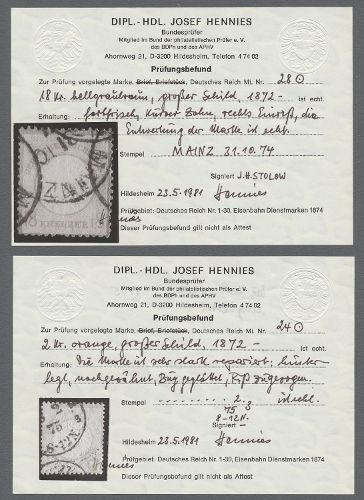 DIPL.- HDL. JOSEF HENNIES
Bundesprüfer
Mitglied im Bund der philatelistischen Prüfer e. V.
des BDPh und des APHV
Ahornweg 21, D-3200 Hildesheim, Telefon 4 74 02
Prüfungsbefund
Zur Prüfung vorgelegte Marke, Brief, Briefstück, Deutsches Reich Mi. Nr. 28
18 Kr. hellgraubraun, großer Schild, 1872 - ist echt.
Erhaltung: farbfrisch, kurzer Zahn, rechts Einriß, die
Entwertung der Marke ist echt.
Stempel MAINZ 31.10.74
Signiert J.H. STOLOW
Hildesheim 23.5.1981 Hennies
Prüfgebiet: Deutsches Reich Nr. 1-30, Eisenbahn Dienstmarken 1874
Dieser Prüfungsbefund gilt nicht als Attest
KREUZER
DIPL.- HDL. JOSEF HENNIES
Bundesprüfer
Mitglied im Bund der philatelistischen Prüfer e. V.
des BDPh und des APHV
Ahornweg 21, D-3200 Hildesheim, Telefon 4 74 02
Prüfungsbefund
Zur Prüfung vorgelegte Marke, Brief, Briefstück, Deutsches Reich Mi. Nr. 24
2 Kr. orange, großer Schild, 1872 -
Erhaltung: Die Marke ist sehr stark repariert: hinter-
legt, nachgezähnt, Bug geglättet, Riß zugezogen.
Stempel 2. 3 ist echt.
75
8-12N.
Signiert -
Hildesheim 23.5.1981 Hennies
Prüfgebiet: Deutsches Reich Nr. 1-30, Eisenbahn Dienstmarken 1874
Dieser Prüfungsbefund gilt nicht als Attest